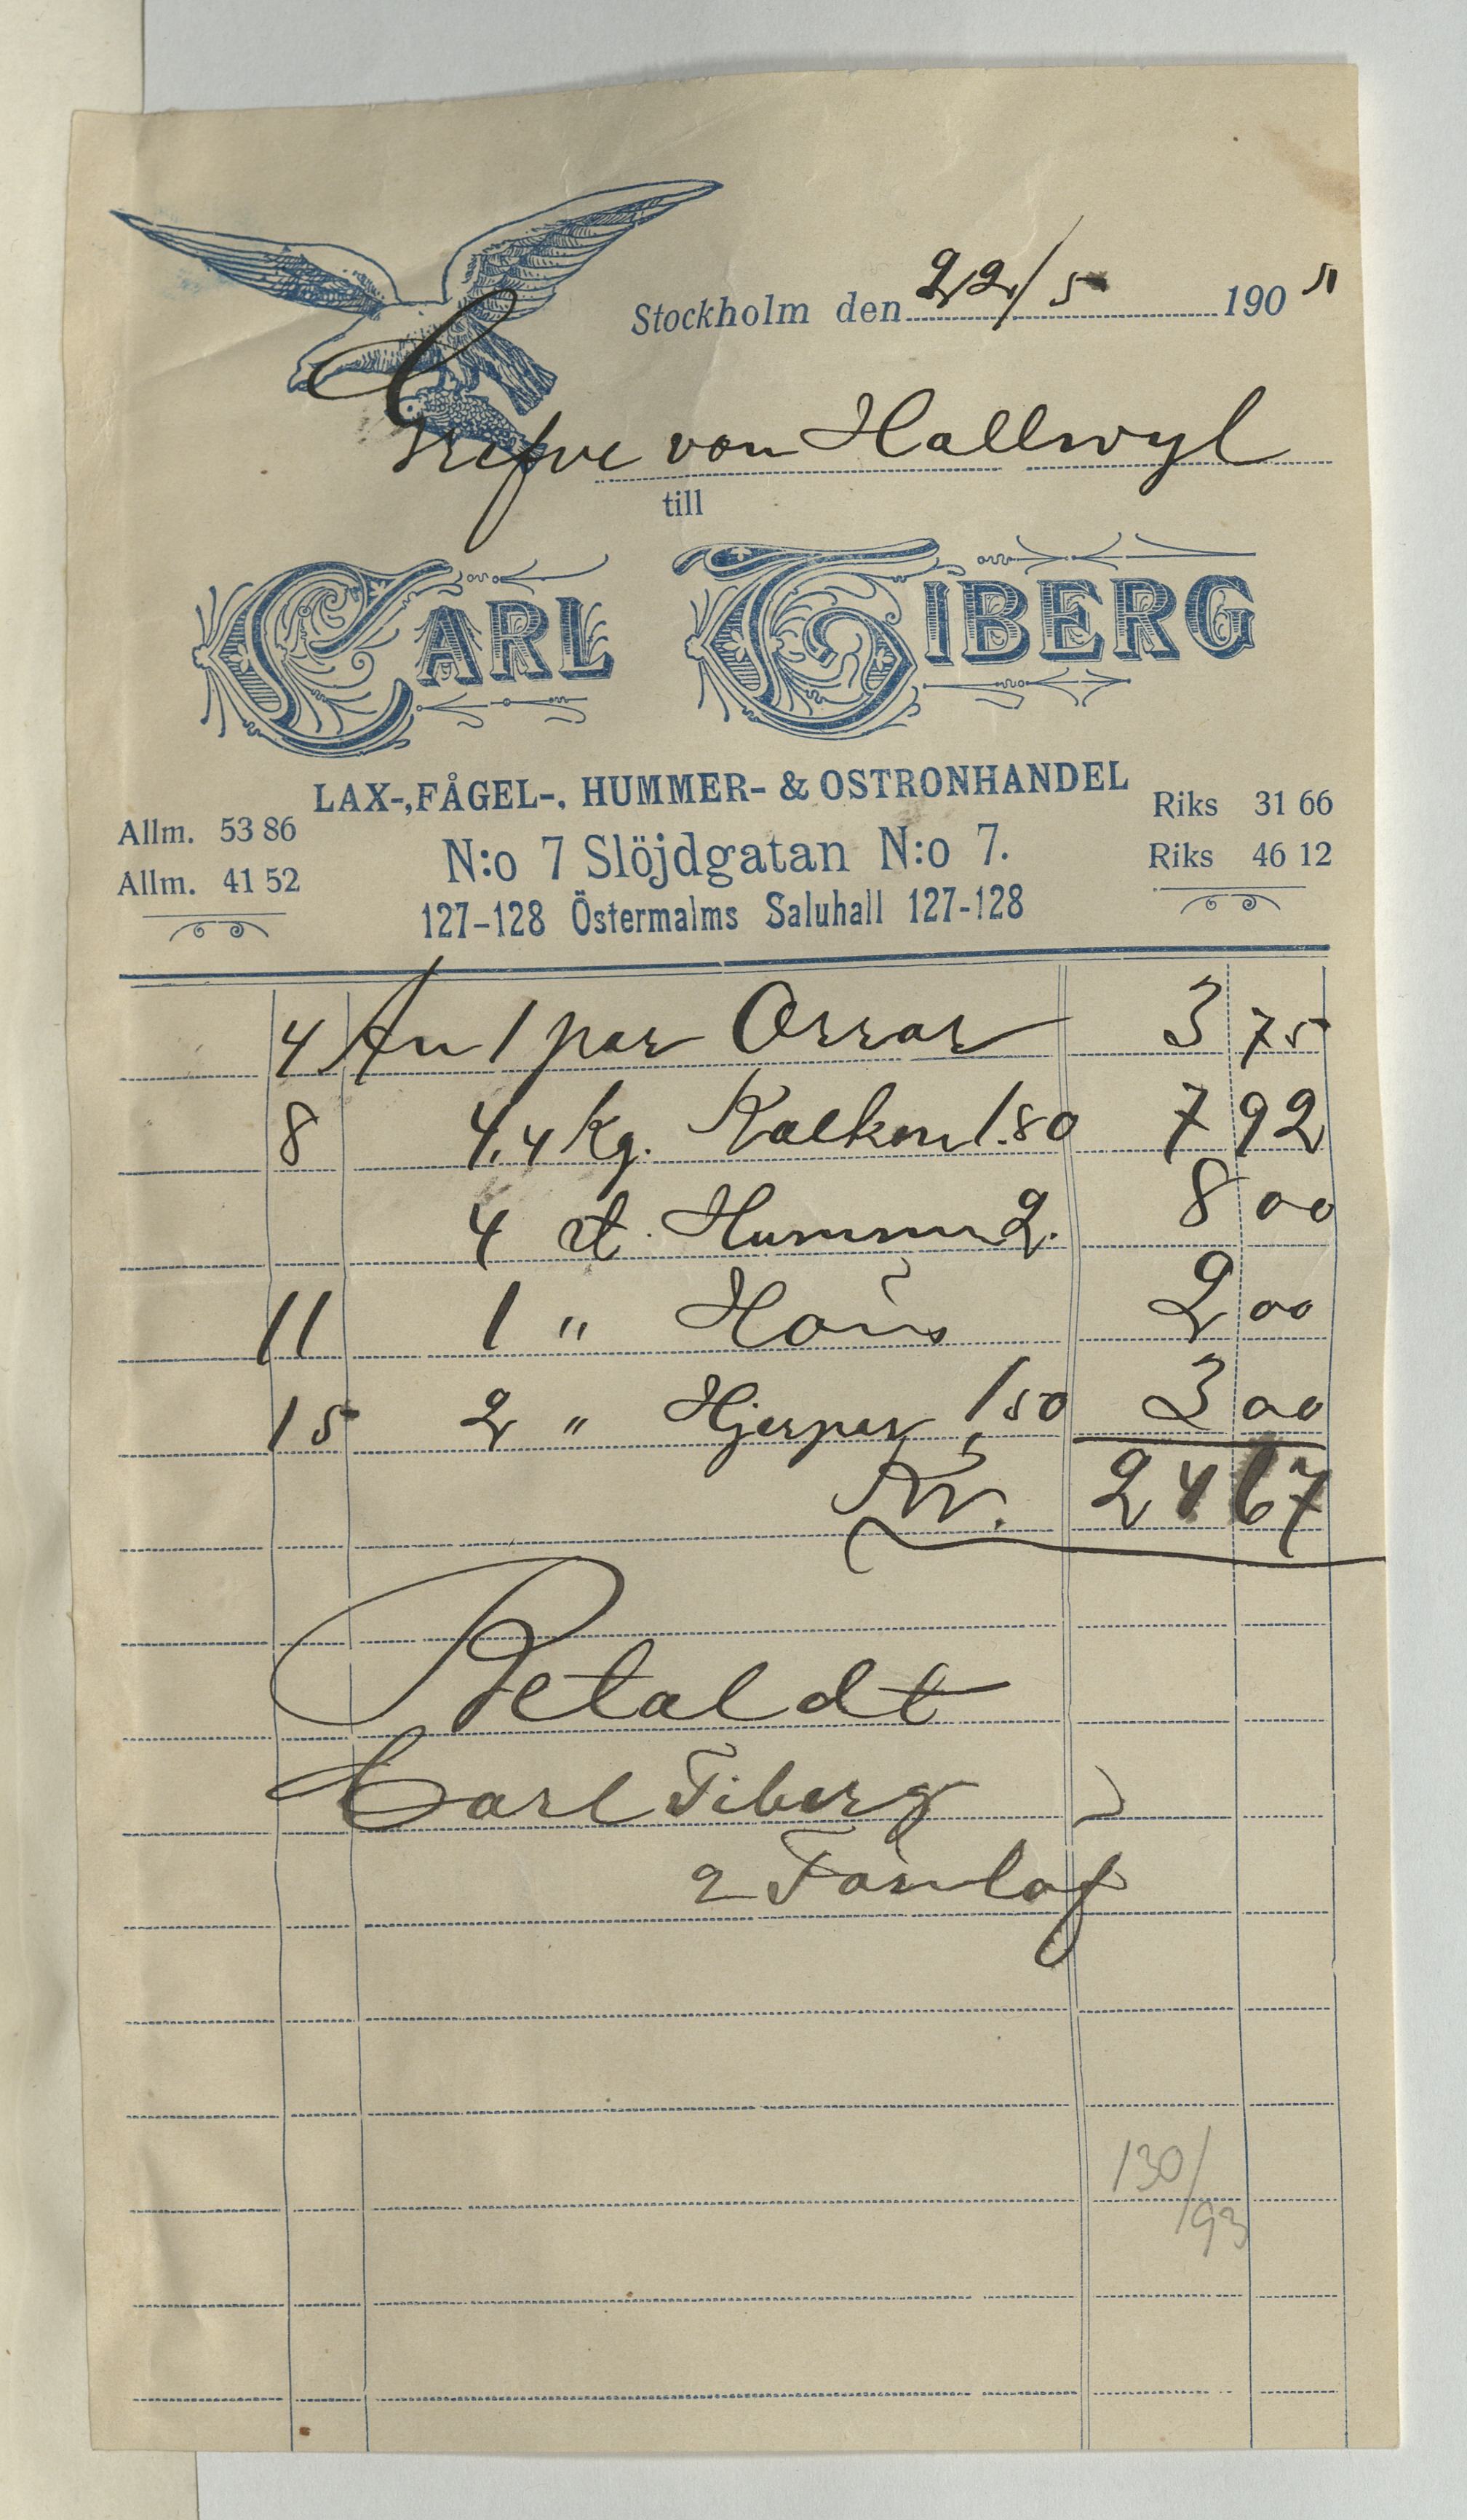 Stockholm den 22/5 1905
Grefve von Hallwyl
till
CARL TIBERG
LAX-, FÅGEL-, HUMMER- & OSTRONHANDEL
Allm. 53 86
Allm. 41 52
N:o 7 Slöjdgatan N:o 7.
127-128 Östermalms Saluhall 127-128
Riks 31 66
Riks 46 12
4 An 1 par Orrar 3 75
8 4,4 Kg. Kalkon 1.80 7 92
4 st. Hummer 2. 8 00
11 1 " Höns 2 00
15 2 " Hjerpar 1 50 3 00
Kr. 24 67
Betaldt
Carl Tiberg
130/93